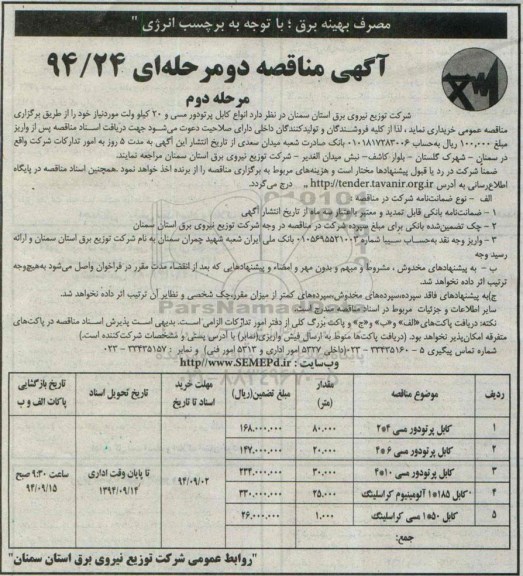 مصرف بهینه برق ؛ با توجه به برچسب انرژی "
آگهی مناقصه دومرحله‌ای ۹۴/۲۴
مرحله دوم
شرکت توزیع نیروی برق استان سمنان در نظر دارد انواع کابل پرتودور مسی و ۲۰ کیلو ولت موردنیاز خود را از طریق برگزاری
مناقصه عمومی خریداری نماید ، لذا از کلیه فروشندگان و تولیدکنندگان داخلی دارای صلاحیت دعوت می‌شود جهت دریافت اسناد مناقصه پس از واریز
مبلغ ۱۰۰,۰۰۰ ریال به‌حساب ۰۱۰۱۸۱۷۲۸۳۰۰۶ بانک صادرت شعبه میدان سعدی از تاریخ انتشار این آگهی به مدت ۵ روز به امور تدارکات شرکت واقع
در سمنان - شهرک گلستان - بلوار کاشف- نبش میدان الغدیر - شرکت توزیع نیروی برق استان سمنان مراجعه نمایند.
ضمناً شرکت در رد یا قبول پیشنهادها مختار است و هزینه‌های مربوط به برگزاری مناقصه را از برنده اخذ خواهد نمود. همچنین اسناد مناقصه در پایگاه
اطلاع‌رسانی به آدرس http://tender.tavanir.org.ir درج می‌گردد.
الف - نوع ضمانت‌نامه شرکت در مناقصه :
۱ - ضمانت‌نامه بانکی قابل تمدید و معتبر با اعتبار سه ماه از تاریخ انتشار آگهی
۲ - چک تضمین‌شده بانکی برای مبلغ سپرده شرکت در مناقصه در وجه شرکت توزیع نیروی برق استان سمنان
۳ - واریز وجه نقد به‌حساب سیبا شماره ۰۱۰۵۶۹۵۵۲۱۰۰۳ بانک ملی ایران شعبه شهید چمران سمنان به نام شرکت توزیع نیروی برق استان سمنان و ارائه
رسید وجه
ب - به پیشنهادهای مخدوش ، مشروط و مبهم و بدون مهر و امضاء و پیشنهادهایی که بعد از انقضاء مدت مقرر در فراخوان واصل می‌شود به‌هیچ‌وجه
ترتیب اثر داده نخواهد شد.
ج)به پیشنهادهای فاقد سپرده،سپرده‌های مخدوش،سپرده‌های کمتر از میزان مقرر،چک شخصی و نظایر آن ترتیب اثر داده نخواهد شد.
سایر اطلاعات و جزئیات مربوط در اسناد مناقصه مندرج است.
نکته: دریافت پاکت‌های «الف» و«ب» و«ج» و پاکت بزرگ کلی از دفتر امور تدارکات الزامی است. بدیهی است پذیرش اسناد مناقصه در پاکت‌های
متفرقه امکان‌پذیر نخواهد بود. (دریافت پاکت‌ها منوط به ارسال فیش واریزی(نمابر) با آدرس پستی و مشخصات شرکت‌کننده است.)
شماره تماس پیگیری ۵ - ۳۳۴۳۵۱۶۰ - ۰۲۳ (داخلی ۵۳۳۷ امور اداری و ۵۳۱۳ امور فنی) و نمابر : ۳۳۴۳۵۱۵۷ - ۰۲۳
وب‌سایت : http//www.SEMEPd.ir
ردیف موضوع مناقصه مقدار (متر) مبلغ تضمین(ریال) مهلت خرید اسناد تا تاریخ تاریخ تحویل اسناد تاریخ بازگشایی پاکات الف و ب
۱ کابل پرتودور مسی ۴*۲ ۸۰.۰۰۰ ۱۶۸.۰۰۰.۰۰۰
۲ کابل پرتودور مسی ۶*۴ ۲۰.۰۰۰ ۱۴۷.۰۰۰.۰۰۰
۳ کابل پرتودور مسی ۱۰*۴ ۳۰.۰۰۰ ۲۳۴.۰۰۰.۰۰۰ ۹۴/۰۹/۰۲ تا پایان وقت اداری ۱۳۹۴/۰۹/۱۴ ساعت ۹:۳۰ صبح ۹۴/۰۹/۱۵
۴ کابل ۱۸۵*۱ آلومینیوم کراسلینگ ۲۵.۰۰۰ ۳۳۰.۰۰۰.۰۰۰
۵ کابل ۵۰*۱ مسی کراسلینگ ۱.۰۰۰ ۲۶.۰۰۰.۰۰۰
جمع:
"روابط عمومی شرکت توزیع نیروی برق استان سمنان"